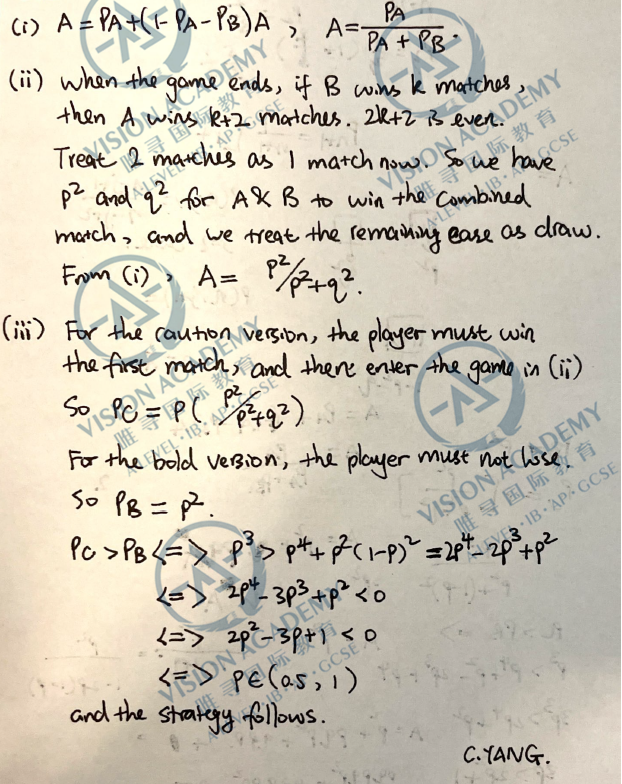 (i) A = PA+(1-PA-PB)A , A= PA/PA+PB.
(ii) when the game ends, if B wins k matches,
then A wins k+2 matches. 2k+2 is even.
Treat 2 matches as 1 match now. So we have
p² and q² for A & B to win the combined
match, and we treat the remaining case as draw.
From (i), A= p²/p²+q².
(iii) For the caution version, the player must win
the first match, and there enter the game in (ii)
So PC = P( p²/p²+q²)
For the bold version, the player must not lose.
So PB = p².
PC > PB <=> p³ > p⁴+p²(1-p)² =2p⁴-2p³+p²
<=> 2p⁴-3p³+p² <0
<=> 2p²-3p+1 <0
<=> p∈(0.5, 1)
and the strategy follows.
C.YANG.
VISION ACADEMY
唯寻国际教育
A-LEVEL·IB·AP·GCSE
VISION ACADEMY
唯寻国际教育
A-LEVEL·IB·AP·GCSE
VISION ACADEMY
唯寻国际教育
A-LEVEL·IB·AP·GCSE
VISION ACADEMY
唯寻国际教育
A-LEVEL·IB·AP·GCSE
VISION ACADEMY
唯寻国际教育
A-LEVEL·IB·AP·GCSE